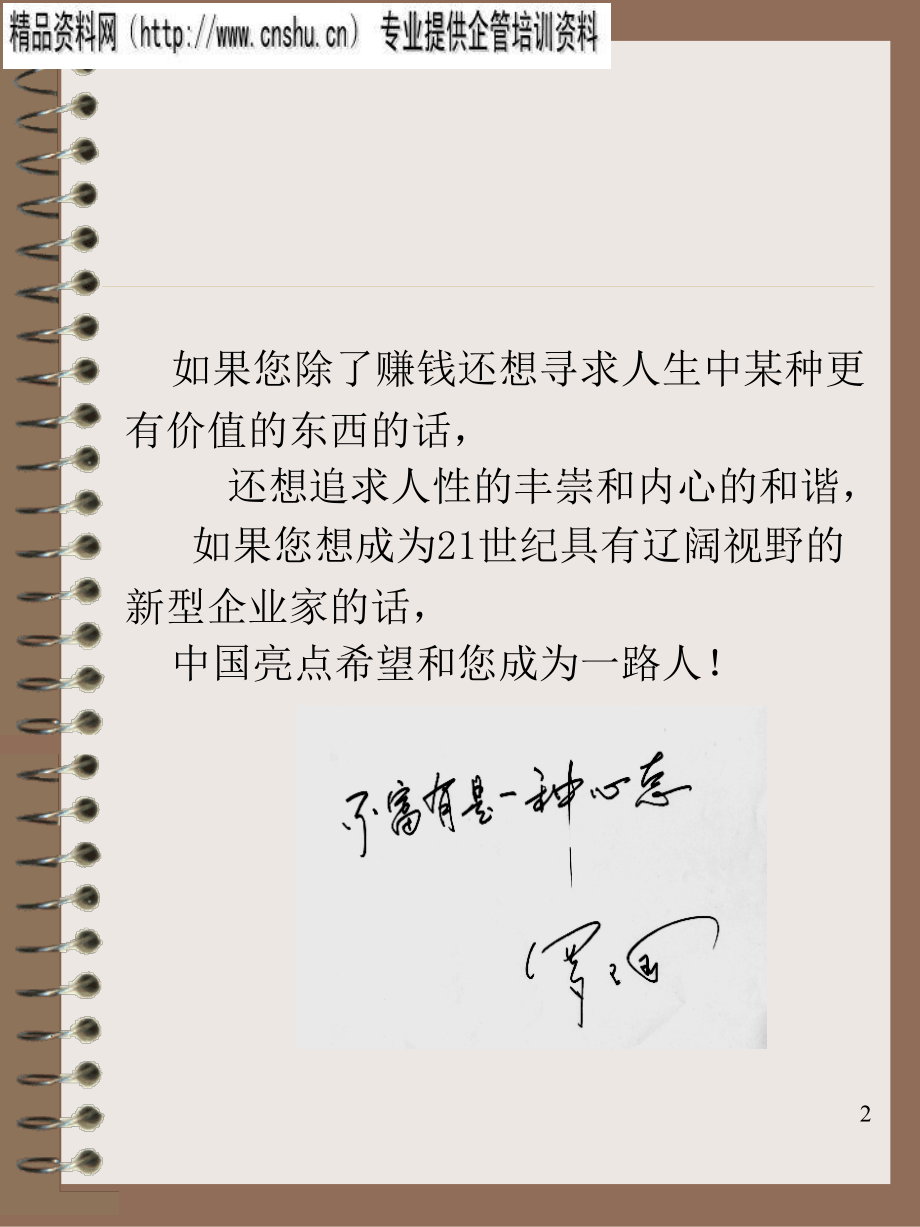 精品资料网（http://www.cnshu.cn） 专业提供企管培训资料
如果您除了赚钱还想寻求人生中某种更
有价值的东西的话，
还想追求人性的丰崇和内心的和谐，
如果您想成为21世纪具有辽阔视野的
新型企业家的话，
中国亮点希望和您成为一路人！
不富有是一种心态
2